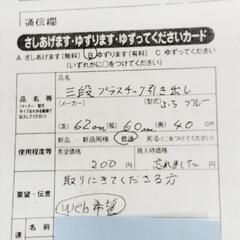 通信欄
さしあげます・ゆずります・ゆずってくださいカード
A さしあげます(無料) B ゆずります(有料) C ゆずってください
(いずれかに○をつけてください)
品名等
三段プラスチック引き出し
(メーカー) (型式) ブルー
(高) 62cm (幅) 60cm (奥) 40cm
使用程度等
新品 新品同様 普通 劣る (○をつけてください)
希望価格 200円 購入時価格 忘れました
要望・伝言
取りにきてくださる方
Web希望
連
名